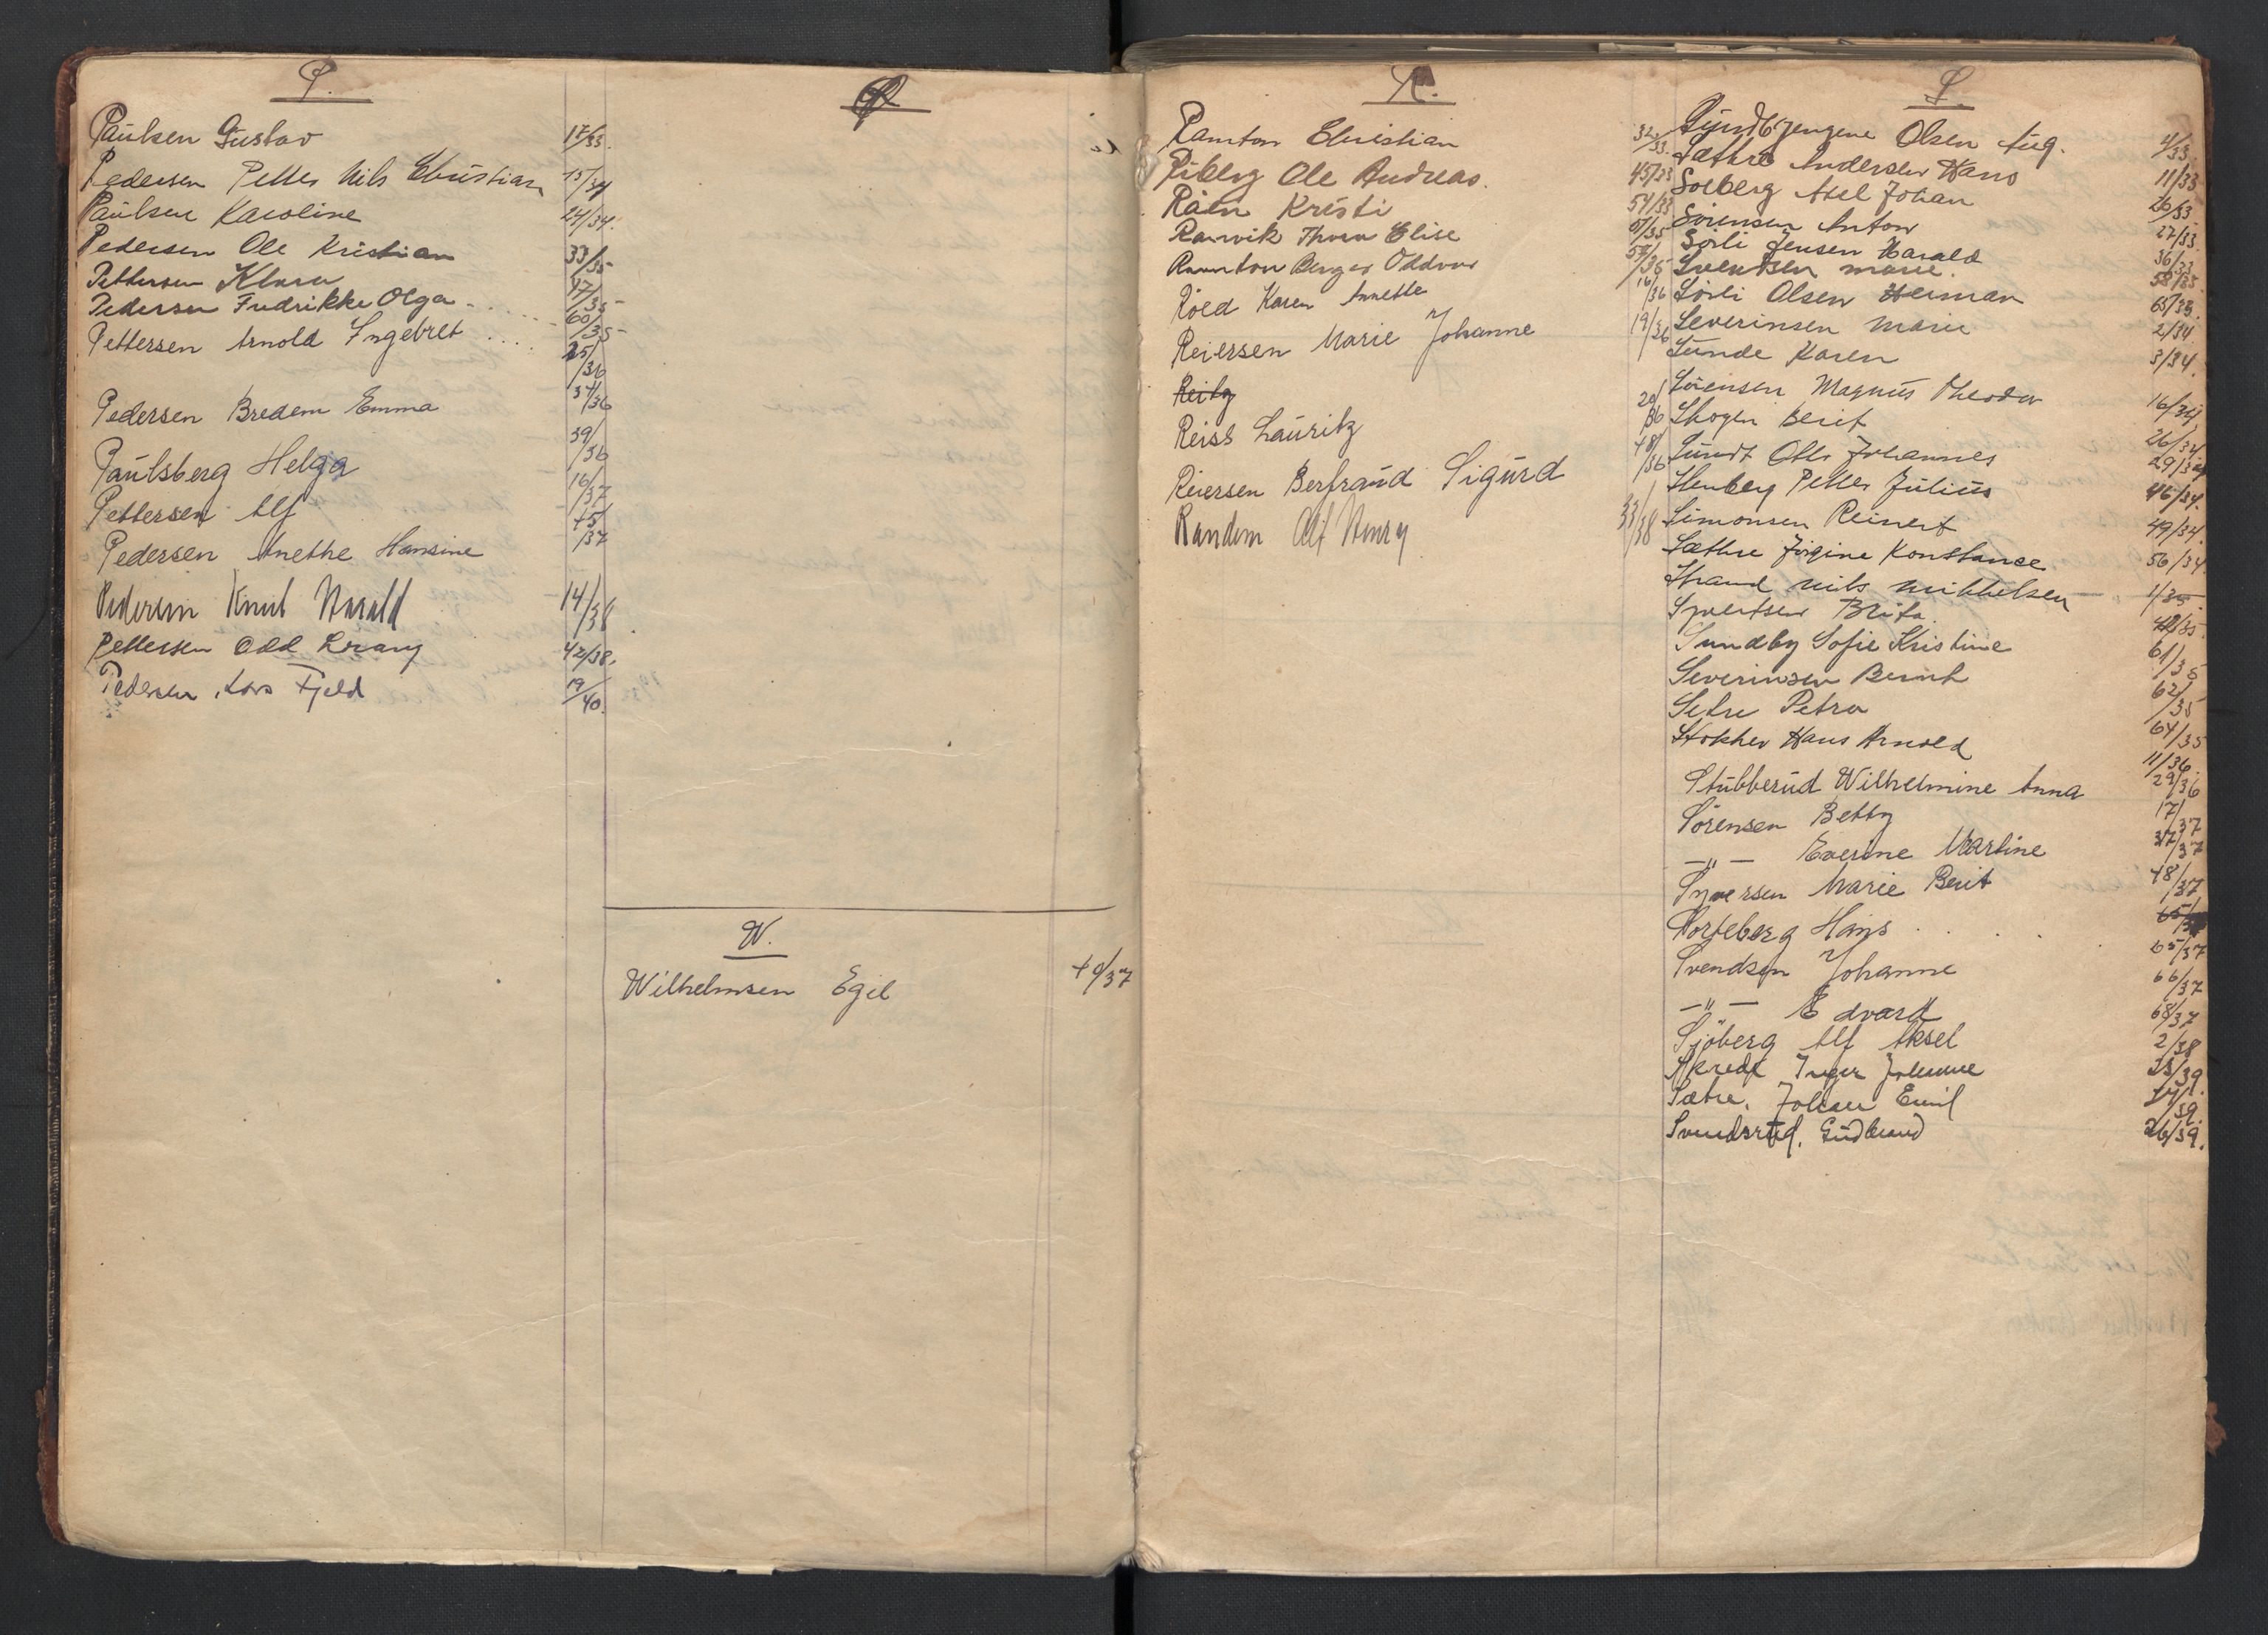 P.
Paulsen Gustav 17/33.
Pedersen Petter Nils Christian 15/34
Paulsen Karoline 24/34.
Pedersen Ole Kristian 33/35
Pettersen Klara 47/35
Pedersen Fredrikke Olga 60/35
Pettersen Arnold Ingebret 25/36
Pedersen Bredem Emma 37/36
Paulsberg Helga 39/36
Pettersen Alf 16/37
Pedersen Anethe Hansine 45/37
Pedersen Knut Harald 14/38
Pettersen Odd 42/38.
Pedersen Lars Fjeld 19/40.
Q
W.
Wilhelmsen Egil 49/37
R.
Ramton Christian 32/33.
Riberg Ole Andreas. 45/33
Råen Kristi 54/33
Ramvik Thora Elise 51/35
Ramton Berger Oddvar 59/35
Röed Karen Annette 16/36
Reiersen Marie Johanne 19/36
Reitz
Reiss Lauritz 20/36
Reiersen Berfraud Sigurd 48/36
Randem Alf Henry 33/38
S.
Olsen Aug. 4/33.
Sæthre Andersen Hans 11/33
Solberg Axel Johan 26/33
Sörensen Anton 27/33.
Sörli Jensen Harald 36/33
Svendsen Marie. 58/33.
Sörli Olsen Herman 65/33.
Severinsen Marie 2/34
Sunde Karen 3/34.
Sörensen Magnus Theodor 16/34
Skogen Berit 26/34
Sundt Johannes 29/34
Stenberg Petter Julius 46/34.
Simonsen Reinert 49/34.
Sæthre Jörgine Konstanse 56/34.
Strand Nils Mikkelsen 1/35.
Syvertsen Brita. 42/35.
Sundby Sofie Kristine 61/35
Severinsen Bernt 62/35
Setre Petra 64/35
Stokker Hans Arnold 11/36.
Stubberud Wilhelmine Anna 29/36
Sörensen Betty 17/37
—"— Everine Martine 37/37
Syversen Marie Berit 48/37
Storteberg Hans 65/37
Svendsen Johanne 66/37
—"— Edvard 68/37
Sjöberg Alf Aksel 2/38
Inger Johanne 13/39.
Sætre, Johan Emil 14/39.
Svendsrud, Gudbrand 26/39.